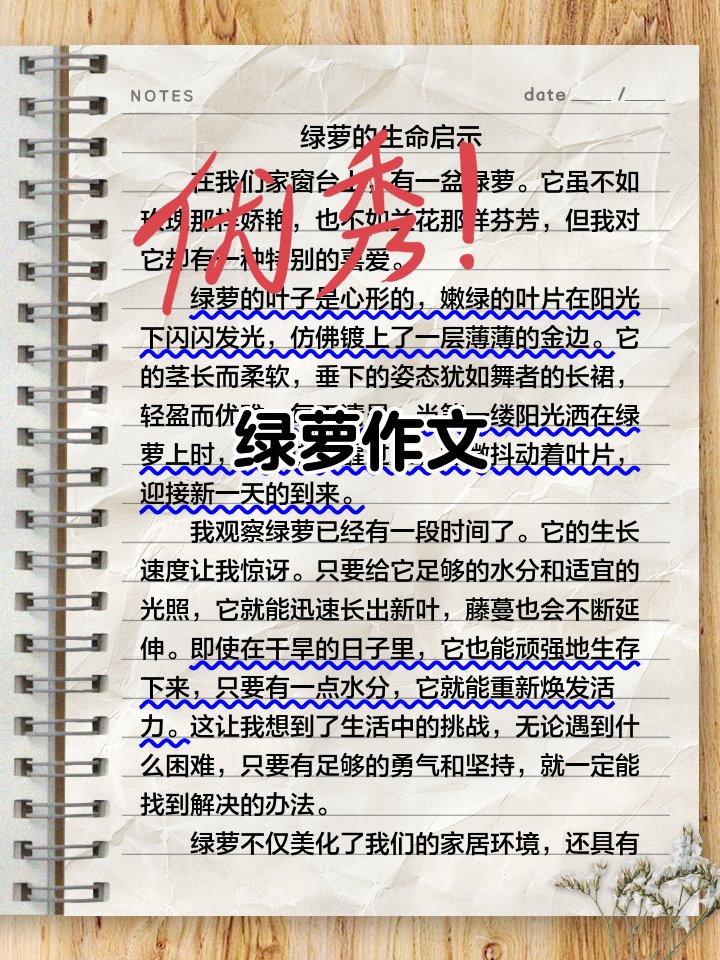 NOTES date / 
绿萝的生命启示
在我们家窗台上，有一盆绿萝。它虽不如
玫瑰那样娇艳，也不如兰花那样芬芳，但我对
它却有一种特别的喜爱。
优秀！
绿萝的叶子是心形的，嫩绿的叶片在阳光
下闪闪发光，仿佛镀上了一层薄薄的金边。它
的茎长而柔软，垂下的姿态犹如舞者的长裙，
轻盈而优 一缕阳光洒在绿
绿萝作文
萝上时， 微抖动着叶片，
迎接新一天的到来。
我观察绿萝已经有一段时间了。它的生长
速度让我惊讶。只要给它足够的水分和适宜的
光照，它就能迅速长出新叶，藤蔓也会不断延
伸。即使在干旱的日子里，它也能顽强地生存
下来，只要有一点水分，它就能重新焕发活
力。这让我想到了生活中的挑战，无论遇到什
么困难，只要有足够的勇气和坚持，就一定能
找到解决的办法。
绿萝不仅美化了我们的家居环境，还具有